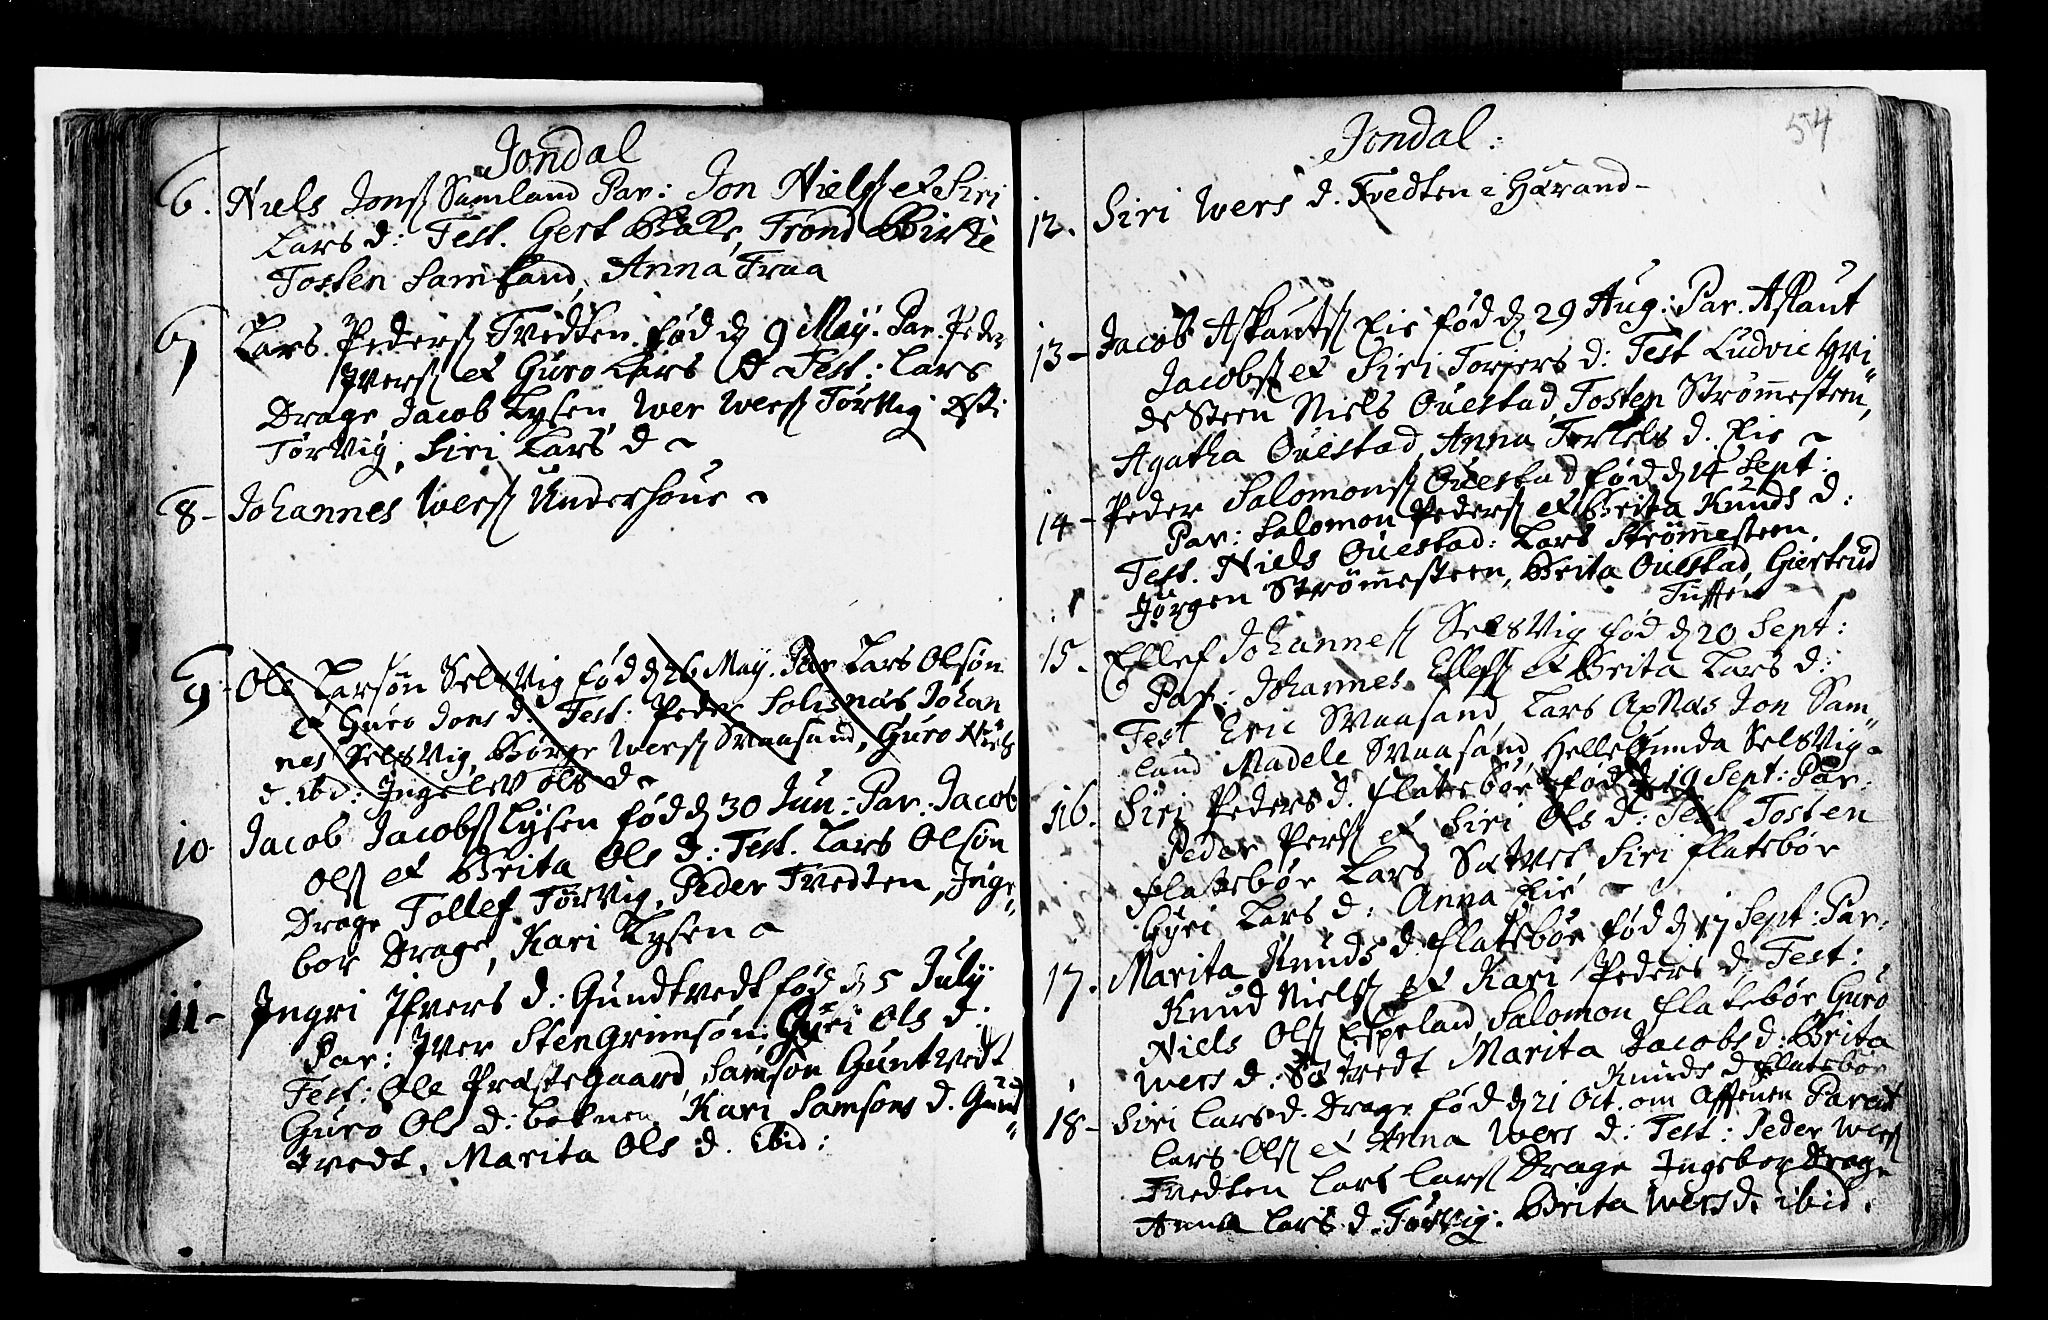 Jondal
6. Niels Jonsz Samland Par: Jon Nielsz et Siri
Lars d: Test. Gert Trond Birke
Tosten Samland, Anna Traa
7 Lars Pedersz Tvedten fød d 9 Maij. Par. Peder
Iversz et Guro Lars D Test: Lars
Drage Jacob Lysen, Iver Iversz Tørvig
Tørvig, Siri Lars d
8- Johannes Iversz Underhoue
9- Ole Larsøn Selsvig fød d 26 Maij. Par Lars Olsøn
et Guro Jons d. Test: Peder Solisnæs Johan
nes Selsvig, Børge Iversz Svaasand, Guro Niels
d. ibid: Ingelev Ols d
10 Jacob Jacobsz Lysen fød d 30 Jun: Par. Jacob
Olsz et Brita Ols d: Test. Lars Olsøn
Drage Tollef Tørvig, Peder Tvedten, Inge"
bor Drage, Kari Lysen
11- Ingri Ifvers d: Gundtvedt fød d 5 Julij
Par: Iver Stengrimsøn. Gyri Ols d.
Test: Ole Præstegaard, Samson Guntvedt
Guro Ols d: Kari Samsons d. Gund"
tvedt, Marita Ols d. ibid:
54
Jondal:
12. Siri Ivers d. Tvedten i Hærand-
13- Jacob Aslautsz Eie fød d 29 Aug: Par. Aslaut
Jacobsz et Siri Torgers d: Test Ludvic Hvi"
desteen Niels Ouestad, Tosten Strømmesteen,
Agatha Ouestad, Anna Torkels d. Eie
14- Peder Salomonsz Ouestad fød d 14 Sept:
Par: Salomon Pedersz et Brita Knuds d:
Test. Niels Ouestad: Lars Strømmesteen.
Jørgen Strømmesteen, Brita Ouestad, Giertrud
Tuften
15. Ellef Johannesz Selsvig fød d 20 Sept:
Par: Johannes Ellefsz et Brita Lars d:
Test Eric Svaasand, Lars Apnæs Jon Sam"
land Madele Svaasand, Hellegunda Selsvig
16. Siri Peders d. Flatebør fød d 19 Sept: Par:
Peder Persz et Siri Ols d: Test Tosten
Flatebør Lars Sætvet Siri Flatebør
Gyri Lars d: Anna Eie
17. Marita Knuds d. Flatebør fød d 17 Sept: Par:
Knud Nielsz et Kari Peders d. Test:
Niels Olsz Espeland, Salomon Flatebør Guro
Ivers d. Sætvedt Marita Jacobs d: Brita
Knuds d Flatebør
18- Siri Lars d. Drage fød d 21 Oct. om Afftenen Parent
Lars Olsz et Anna Ivers d: Test: Peder Iversz
Tvedten Lars Larsz Drage Ingebor Drage
Anna Lars d. Tørvig. Brita Ivers d. ibid.